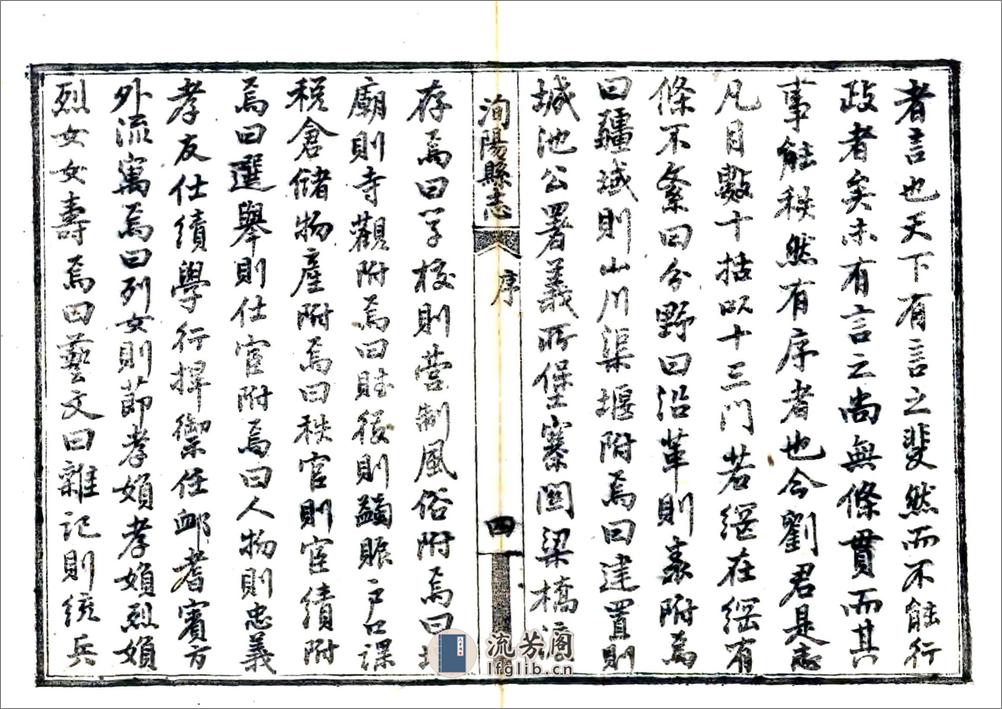 者言也天下有言之斐然而不能行
政者矣未有言之尚無條貫而其
事能秩然有序者也今劉君是志
凡目數十括以十三門若綱在綱有
條不紊曰分野曰沿革則表附焉
曰疆域則山川渠堰附焉曰建置則
城池公署義所堡寨關梁橋
洵陽縣志
序
四
存焉曰學校則營制風俗附焉曰
廟則寺觀附焉曰賦役則蠲賑戶口課
稅倉儲物產附焉曰秩官則宦績附
焉曰選舉則仕宦附焉曰人物則忠義
孝友仕績學行捍禦任卹耆賓方
外流寓焉曰列女則節孝婦孝婦烈婦
烈女女壽焉曰藝文曰雜記則統兵
流芳閣
lfglib.cn